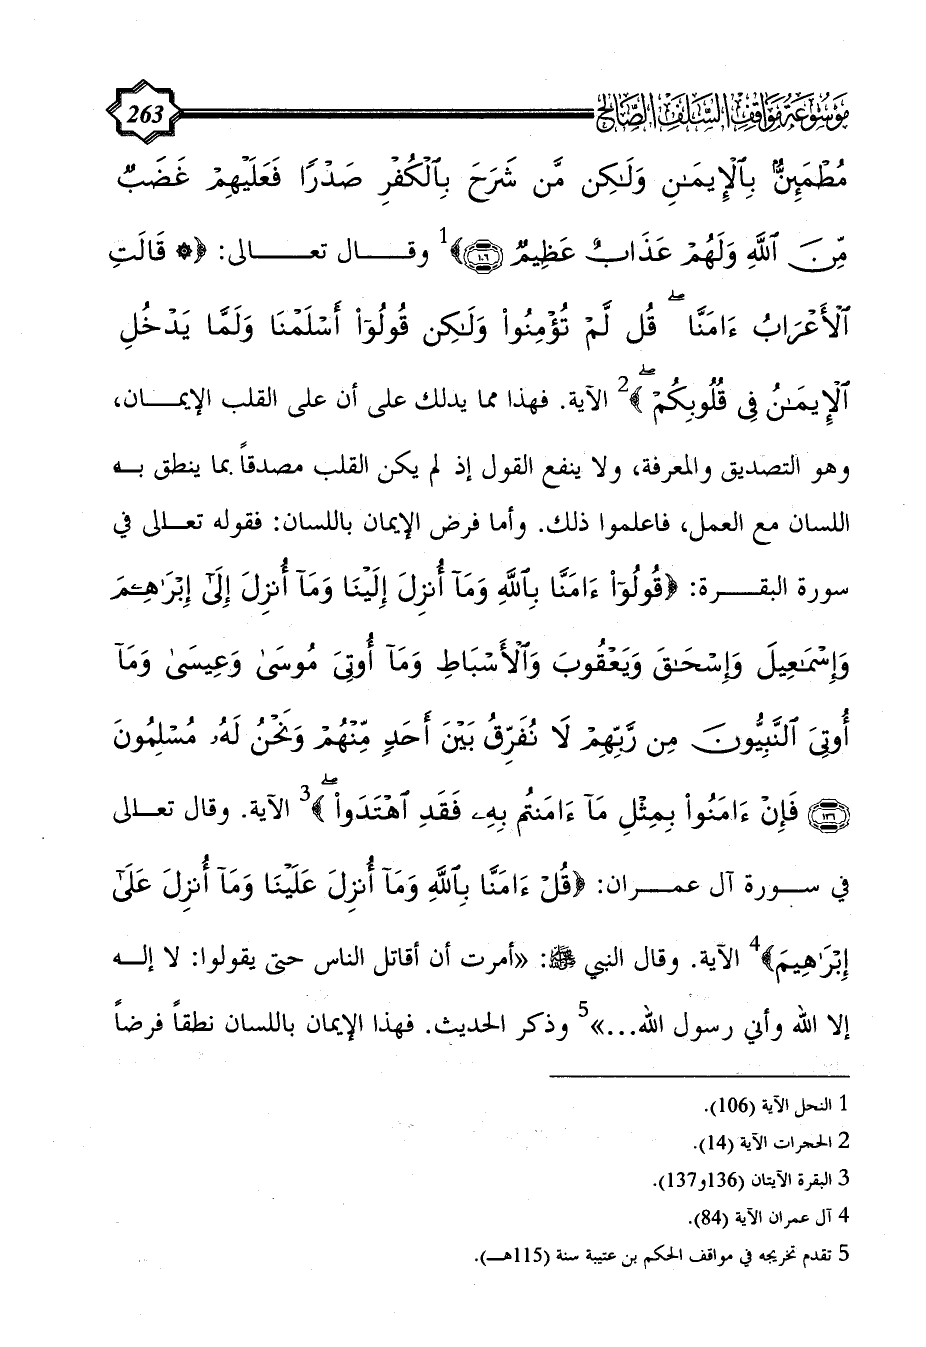 موسوعة مواقف السلف الصالح
263
مُطْمَئِنٌّۢ بِٱلْإِيمَٰنِ وَلَٰكِن مَّن شَرَحَ بِٱلْكُفْرِ صَدْرًا فَعَلَيْهِمْ غَضَبٌ
مِّنَ ٱللَّهِ وَلَهُمْ عَذَابٌ عَظِيمٌ ﴿١٠٦﴾﴾1 وقـــال تعـــالى: ﴿۞ قَالَتِ
ٱلْأَعْرَابُ ءَامَنَّا ۖ قُل لَّمْ تُؤْمِنُوا۟ وَلَٰكِن قُولُوٓا۟ أَسْلَمْنَا وَلَمَّا يَدْخُلِ
ٱلْإِيمَٰنُ فِى قُلُوبِكُمْ ۖ﴾2 الآية. فهذا مما يدلك على أن على القلب الإيمـــان،
وهو التصديق والمعرفة، ولا ينفع القول إذ لم يكن القلب مصدقاً بما ينطق بـه
اللسان مع العمل، فاعلموا ذلك. وأما فرض الإيمان باللسان: فقوله تعـالى في
سورة البقـــرة: ﴿قُولُوٓا۟ ءَامَنَّا بِٱللَّهِ وَمَآ أُنزِلَ إِلَيْنَا وَمَآ أُنزِلَ إِلَىٰٓ إِبْرَٰهِۦمَ
وَإِسْمَٰعِيلَ وَإِسْحَٰقَ وَيَعْقُوبَ وَٱلْأَسْبَاطِ وَمَآ أُوتِىَ مُوسَىٰ وَعِيسَىٰ وَمَآ
أُوتِىَ ٱلنَّبِيُّونَ مِن رَّبِّهِمْ لَا نُفَرِّقُ بَيْنَ أَحَدٍ مِّنْهُمْ وَنَحْنُ لَهُۥ مُسْلِمُونَ
﴿١٣٦﴾ فَإِنْ ءَامَنُوا۟ بِمِثْلِ مَآ ءَامَنتُم بِهِۦ فَقَدِ ٱهْتَدَوا۟ ۖ﴾3 الآية. وقال تعـالى
في ســورة آل عمـــران: ﴿قُلْ ءَامَنَّا بِٱللَّهِ وَمَآ أُنزِلَ عَلَيْنَا وَمَآ أُنزِلَ عَلَىٰٓ
إِبْرَٰهِيمَ﴾4 الآية. وقال النبي ﷺ: «أمرت أن أقاتل الناس حتى يقولوا: لا إلـه
إلا الله وأني رسول الله...»5 وذكر الحديث. فهذا الإيمان باللسان نطقاً فرضاً
1 النحل الآية (106).
2 الحجرات الآية (14).
3 البقرة الآيتان (136و137).
4 آل عمران الآية (84).
5 تقدم تخريجه في مواقف الحكم بن عتيبة سنة (115هـ).